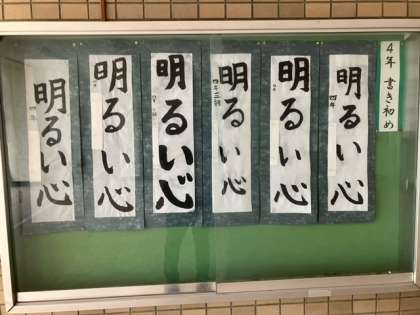 4年 書き初め
明るい心
四年
明るい心
明るい心
四年三組
明るい心
明るい心
明るい心